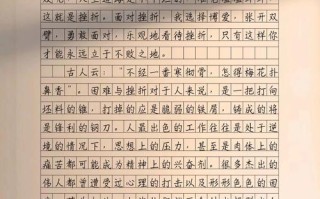 这就是挫折。面对挫折，我选择博爱，张开双
臂，勇敢面对，乐观地看待挫折，只有这样你
才能永远立于不败之地。
古人云：“不经一番寒彻骨，怎得梅花扑
鼻香”。困难与挫折对于人来说，是一把打向
坯料的锤，打掉的应是脆弱的铁屑，铸成的将
是锋利的钢刀。人最出色的工作往往是处于逆
境的情况下，思想上的压力，甚至是肉体上的
痛苦都可能成为精神上的兴奋剂。很多杰出的
伟人都曾遭受过心理的打击以及形形色色的困